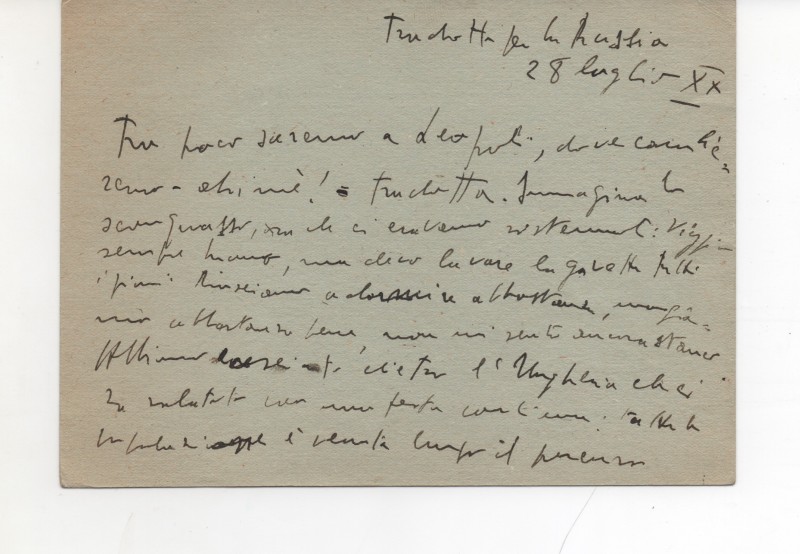 Tradotta per la Russia
28 luglio XX
Tra poco saremo a Leopoli, dove cambie=
remo - ahimè! = tradotta. Immagina lo
sconquasso, ora che ci eravamo sistemati: Viaggio
sempre buono, ma devo lavare la gavetta tutti
i giorni Riusciamo a dormire abbastanza, mangia=
mo abbastanza bene, non mi sento ancora stanco
Abbiamo lasciato dietro l'Ungheria che ci
ha salutato con una festa continua: tutta la
popolazione è venuta lungo il percorso